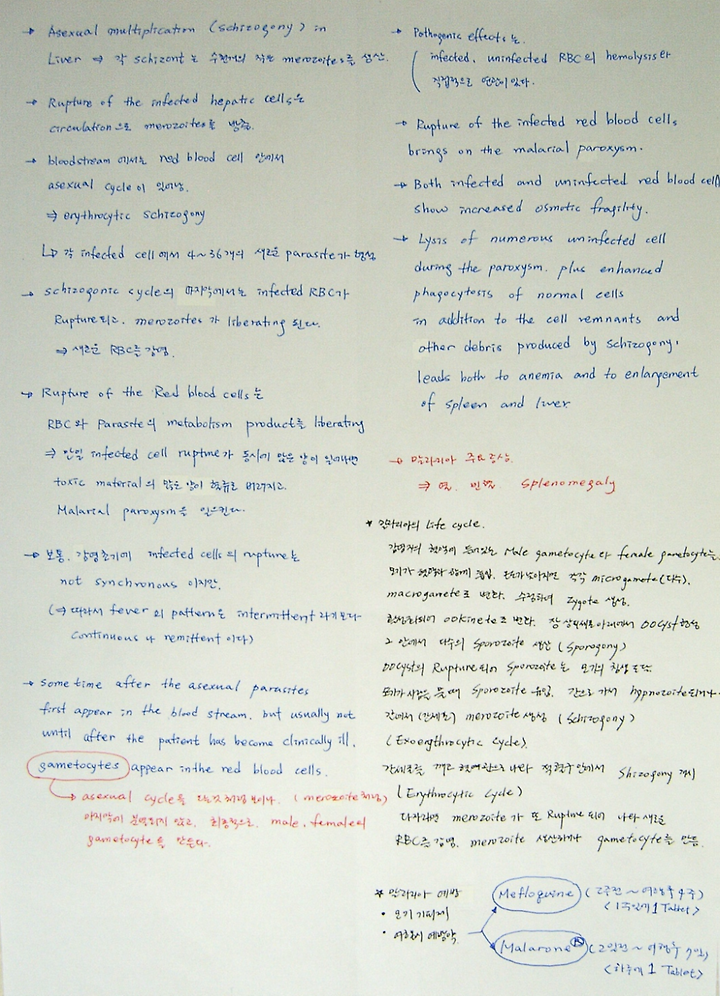 → Asexual multiplication (schizogony) in
Liver ⇒ 각 schizont는 수천개의 작은 merozoites를 생산.
→ Rupture of the infected hepatic cells은
circulation으로 merozoites를 방출.
→ bloodstream에서는 red blood cell 안에서
asexual cycle이 일어남.
⇒ erythrocytic schizogony
↳ 각 infected cell에서 4~36개의 새로운 parasite가 형성
→ schizogonic cycle의 마지막에서는 infected RBC가
Rupture되고, merozoites가 liberating 된다.
⇒ 새로운 RBC를 감염.
→ Rupture of the Red blood cells는
RBC와 Parasite의 metabolism product를 liberating
⇒ 만일 infected cell rupture가 동시에 많은 양이 일어나면
toxic material의 많은 양이 혈류로 버려지고.
Malarial paroxysm을 일으킨다.
→ 보통, 감염초기에 infected cells의 rupture는
not synchronous 이지만,
(⇒ 따라서 fever의 pattern은 intermittent 라기 보다
continuous 나 remittent 이다)
→ Some time after the asexual parasites
first appear in the blood stream, but usually not
until after the patient has become clinically ill,
gametocytes appear in the red blood cells.
→ asexual cycle을 도는것 처럼 보이나. (merozoite처럼)
마지막에 분열되지 않고, 최종적으로 male, female의
gametocyte를 만든다.
→ Pathogenic effects는.
infected, uninfected RBC의 hemolysis와
직접적으로 연관이 있다.
→ Rupture of the infected red blood cells,
brings on the malarial paroxysm.
→ Both infected and uninfected red blood cell
show increased osmotic fragility.
→ Lysis of numerous uninfected cell
during the paroxysm. plus enhanced
phagocytosis of normal cells
in addition to the cell remnants and
other debris produced by schizogony,
leads both to anemia and to enlargement
of spleen and liver.
→ 말라리아 주요증상.
⇒ 열. 빈혈. Splenomegaly
* 말라리아의 Life cycle.
감염자의 혈액에 들어있는 Male gametocyte와 female gametocyte를
모기가 혈액과 함께 흡입. 각각 microgamete(다수),
macrogamete로 변한다. 수정하여 zygote 생성.
ookinete로 변한다. 장 상피세포 아래에서 oocyst 형성
그 안에서 다수의 sporozoite 생산 (Sporogony)
oocyst의 Rupture되어 sporozoite는 모기의 침샘 도달.
모기가 사람을 물때 sporozoite 유입. 간으로 가서 hypnozoite되거나
간에서 (간세포) merozoite 생성 (Schizogony)
(Exoerythrocytic Cycle).
간세포를 깨고 혈액안으로 나와 적혈구 안에서 Shizogony 개시
(Erythrocytic Cycle)
merozoite가 또 Rupture 되어 나와 새로운
RBC를 감염. merozoite 생산하거나 gametocyte를 만듬.
* 말라리아 예방
• 모기 기피제
• 예방약
Mefloquine (2주전 ~ 여행후 4주)
<1주일에 1 Tablet>
Malarone® (2일전 ~ 여행후 7일)
<하루에 1 Tablet>